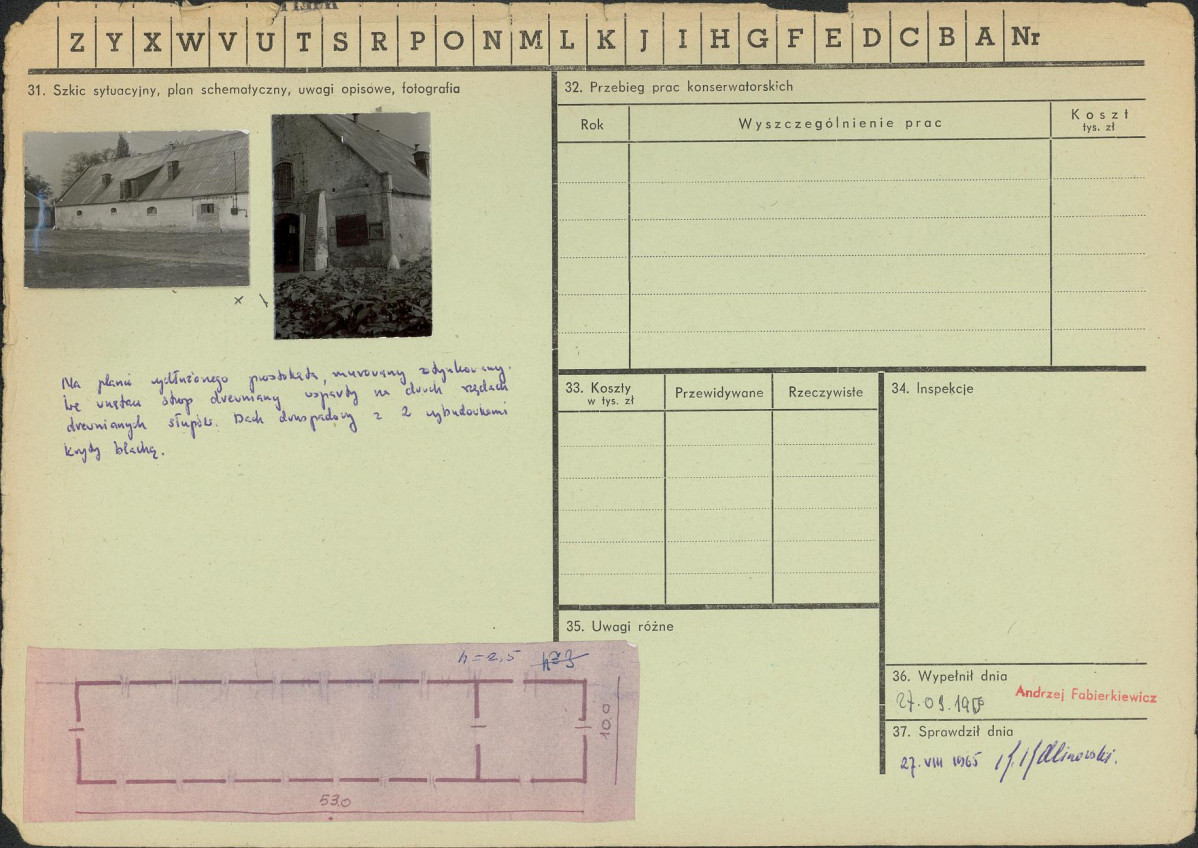 Z Y X W V U T S R P O N M L K J I H G F E D C B A Nr
31. Szkic sytuacyjny, plan schematyczny, uwagi opisowe, fotografia
Na planie wydłużonego prostokąta, murowany otynkowany.
We wnętrzu strop drewniany wsparty na dwuch rzędach
drewnianych słupów. Dach dwuspadowy z 2 wybudówkami
kryty blachą.
h=2,5 h=3
10.0
53.0
32. Przebieg prac konserwatorskich
Rok Wyszczególnienie prac Koszt
tys. zł
33. Koszty
w tys. zł
Przewidywane Rzeczywiste
34. Inspekcje
35. Uwagi różne
36. Wypełnił dnia
27.09.19
Andrzej Fabierkiewicz
37. Sprawdził dnia
27.VIII 1965